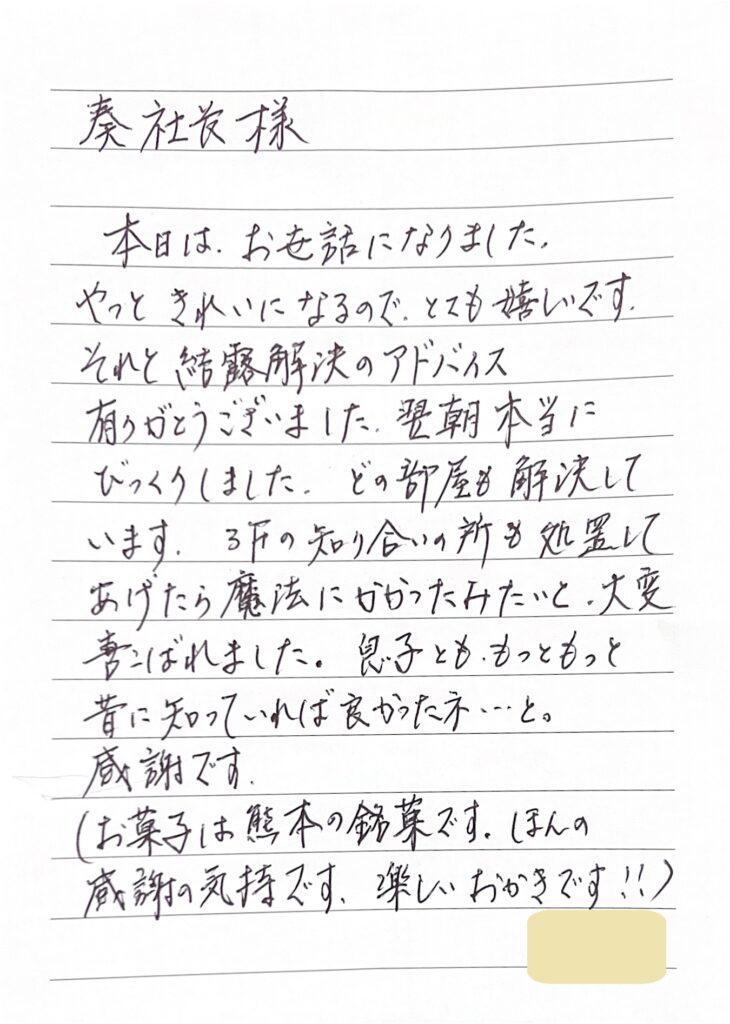 奏社長様
本日は、お世話になりました。
やっときれいになるので、とても嬉しいです。
それと結露解決のアドバイス
有りがとうございました。翌朝本当に
びっくりしました。どの部屋も解決して
います。3下の知り合いの所も処置して
あげたら魔法にかかったみたいと、大変
喜こばれました。息子とも、もっともっと
昔に知っていれば良かったネ…と。
感謝です。
(お菓子は熊本の銘菓です。ほんの
感謝の気持です。楽しいおかきです!!)